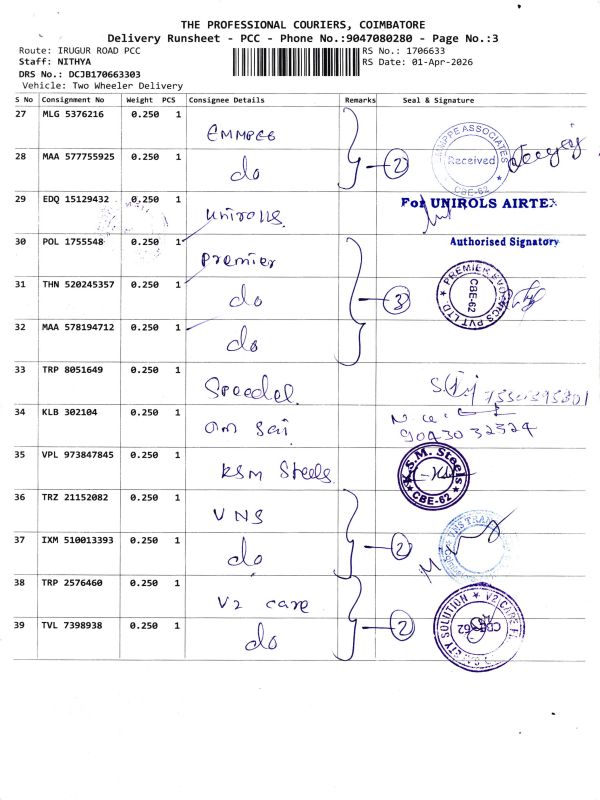 THE PROFESSIONAL COURIERS, COIMBATORE
Delivery Runsheet - PCC - Phone No.:9047080280 - Page No.:3
Route: IRUGUR ROAD PCC
RS No.: 1706633
Staff: NITHYA
RS Date: 01-Apr-2026
DRS No.: DCJB170663303
Vehicle: Two Wheeler Delivery
S No Consignment No Weight PCS Consignee Details Remarks Seal & Signature
27 MLG 5376216 0.250 1 Emmpee
28 MAA 577755925 0.250 1 do 2 ASSOCIATES Received CBE-62
29 EDQ 15129432 0.250 1 Unirolls For UNIROLS AIRTEX
30 POL 1755548 0.250 1 Premier Authorised Signatory
31 THN 520245357 0.250 1 do 3 PREMIER PVT LTD. CBE-62
32 MAA 578194712 0.250 1 do
33 TRP 8051649 0.250 1 Speedel 7550395301
34 KLB 302104 0.250 1 Om Sai 9043032524
35 VPL 973847845 0.250 1 KSM Steels K.S.M. Steels CBE-62
36 TRZ 21152082 0.250 1 VNS
37 IXM 510013393 0.250 1 do 2 VNS TRAN
38 TRP 2576460 0.250 1 V2 care
39 TVL 7398938 0.250 1 do 2 V2 CARE SOLUTION